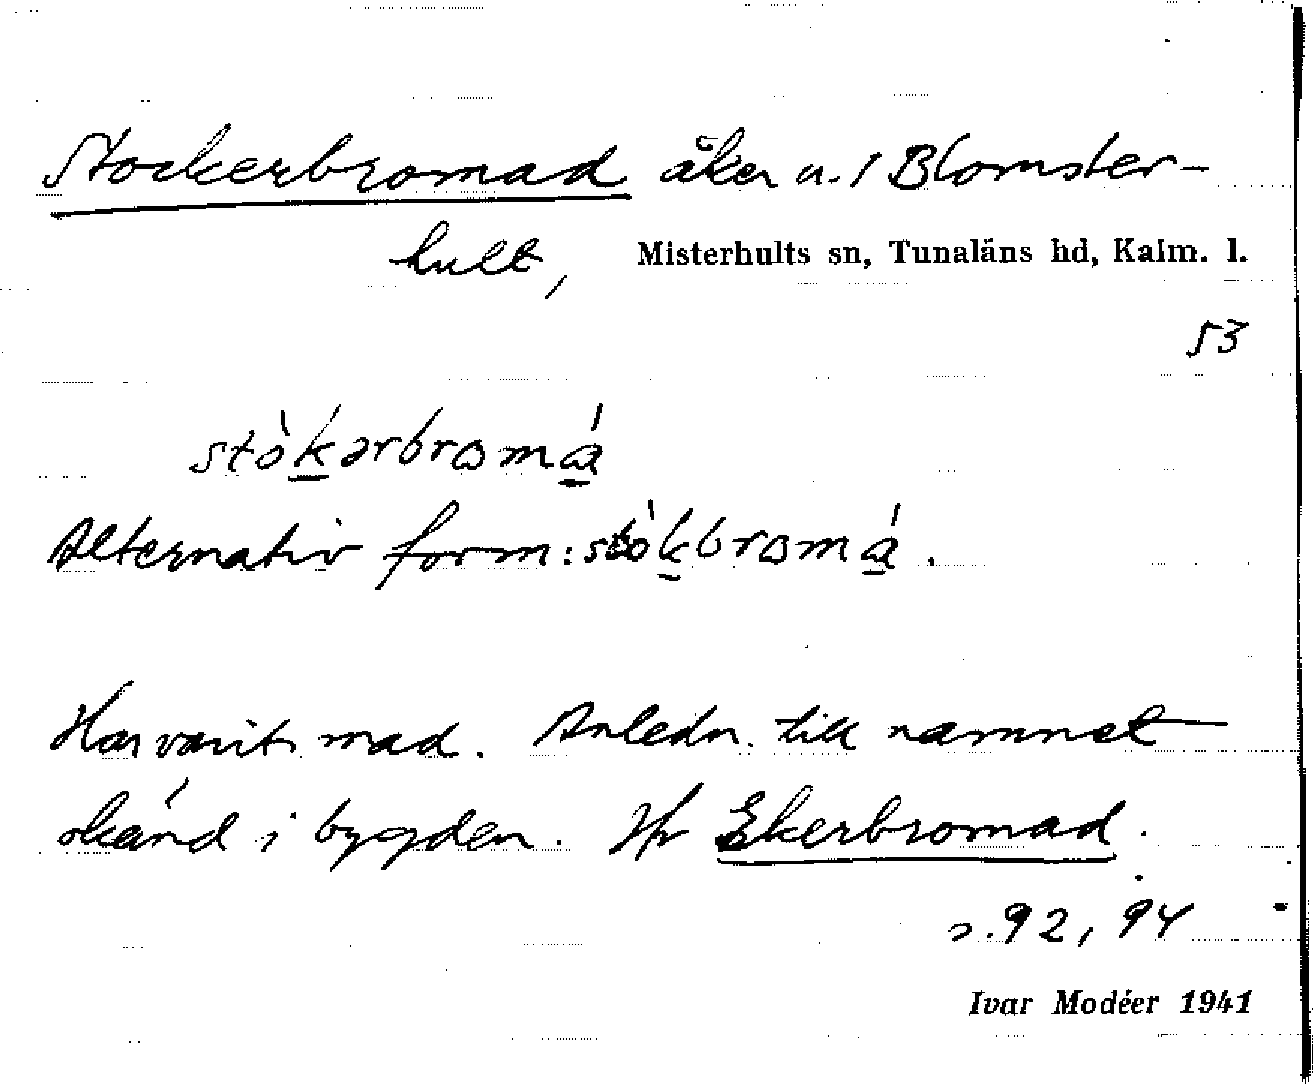 Stockerbromad åker u. / Blomster-
hult, Misterhults sn, Tunaläns hd, Kalm. l.
53
stò̀kərbromá
Alternativ form: stòkbromá.
Har varit mad. Anledn. till namnet
okänd i bygden. Jfr Ekerbromad.
s. 92, 94
Ivar Modéer 1941